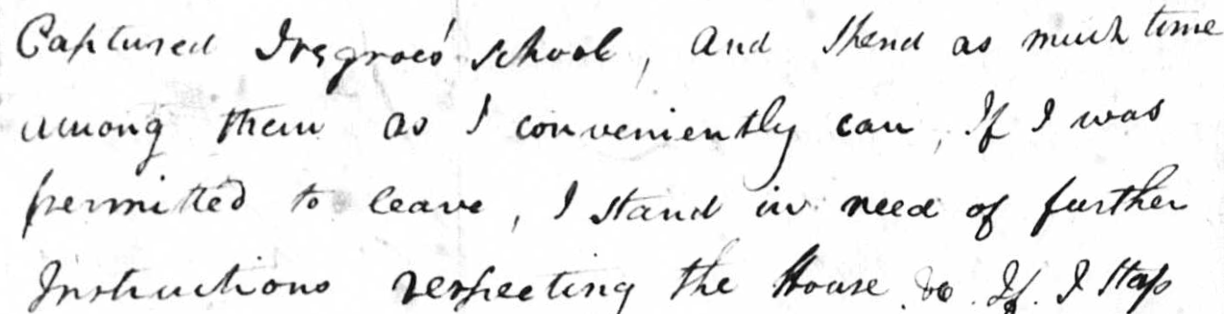 Captured Negroes' school, and spend as much time
among them as I conveniently can, If I was
permitted to leave, I stand in need of further
Instructions respecting the House &c. If. I Stop